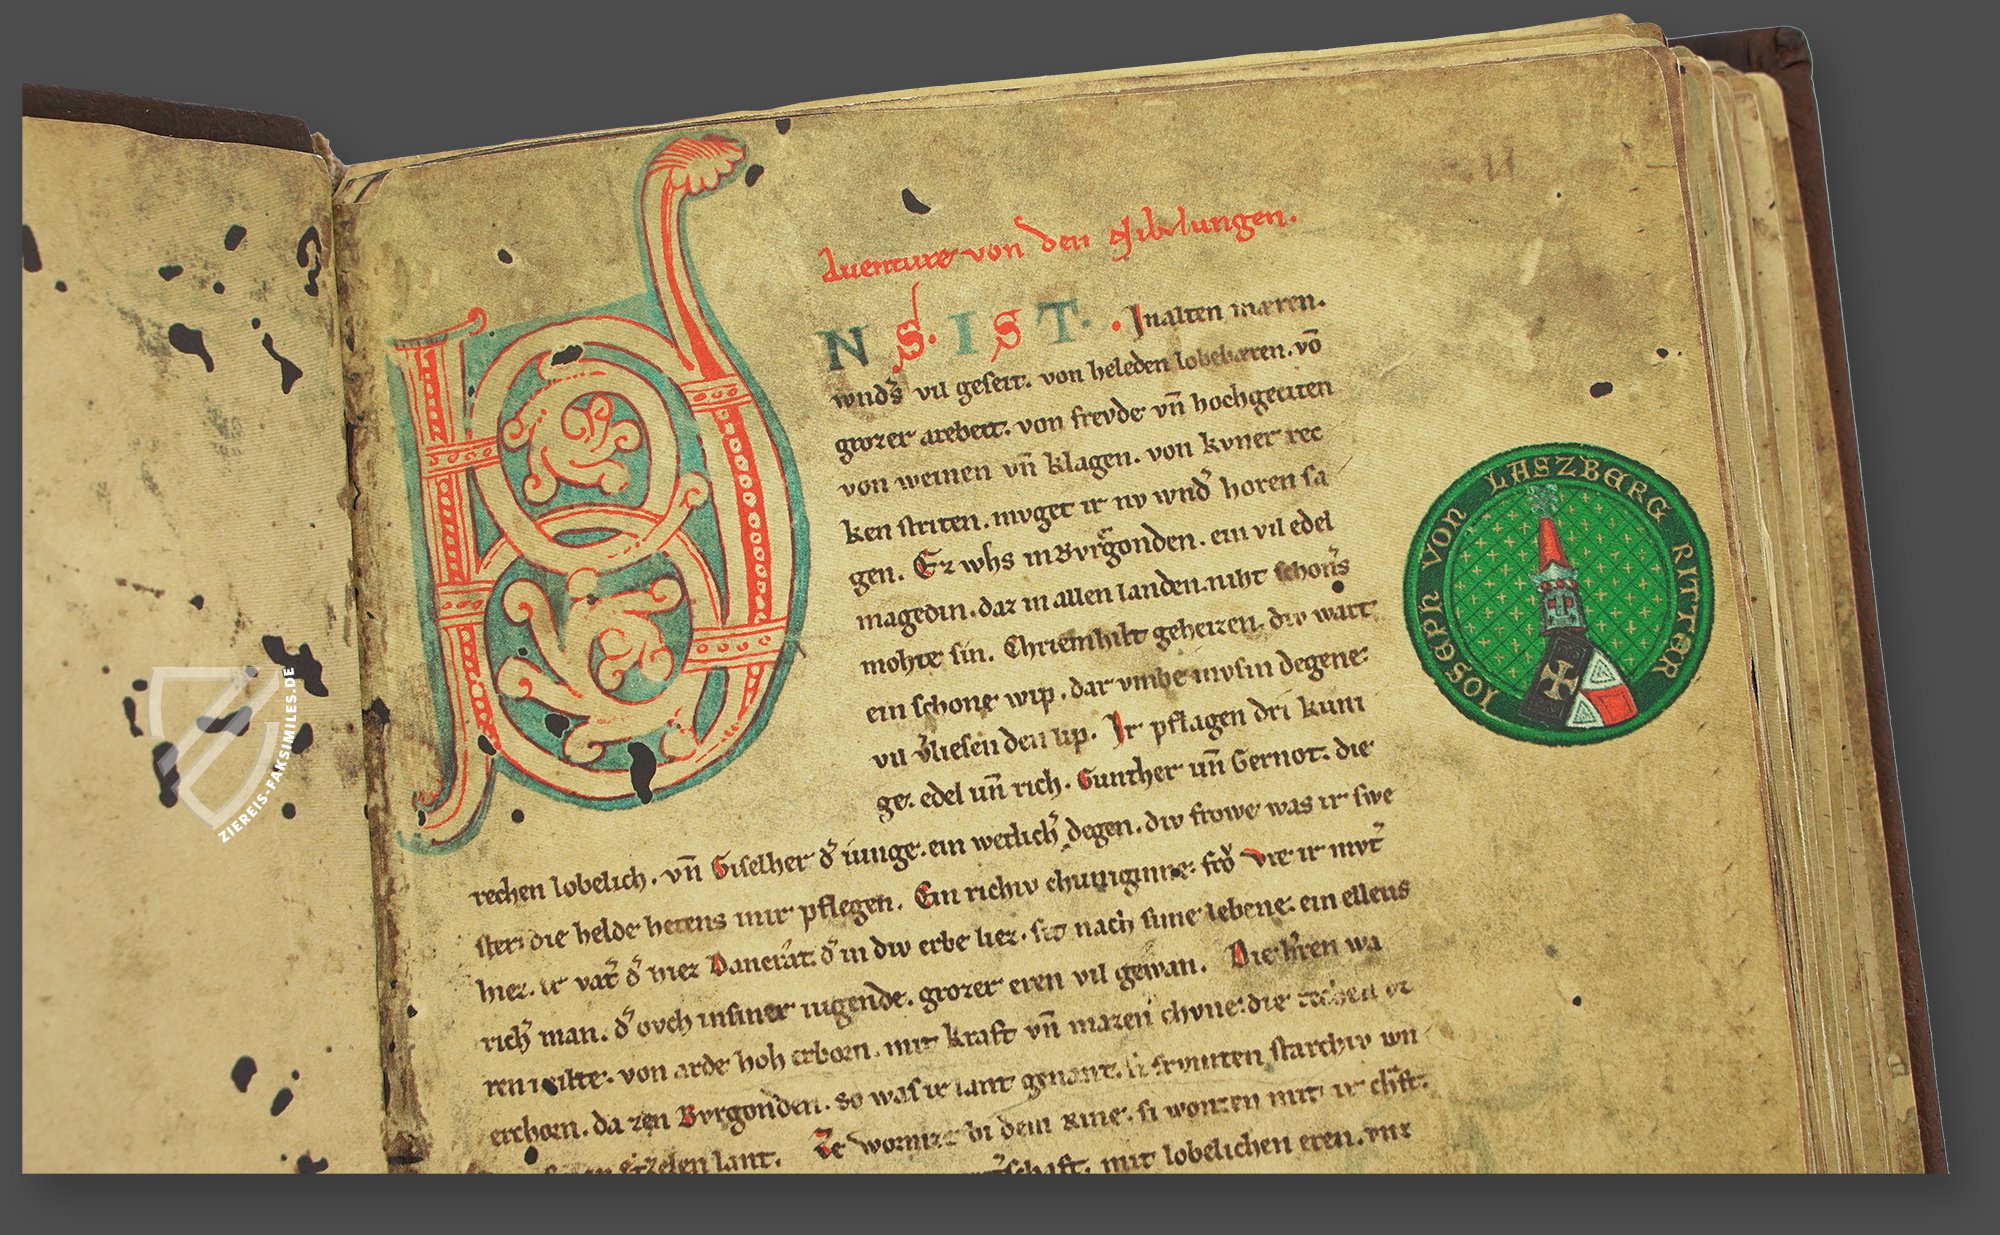 Auenture von den Nibelungen.
UNS. IST. Inalten mæren.
wnds̉ vil geseit. von heleden lobebæren. vō
grozer arebeit. von frevde vn̄ hochgeciten
von weinen vn̄ klagen. von kvner rec
ken striten. mvget ir nv wnd̉ horen sa
gen. Ez whs inBvrgonden. ein vil edel
magedin. daz in allen landen. niht schoñs
mohte sin. Chriemhilt geheizen. div wart
ein schone wip. dar vmbe mvsin degene
vil v̉liesen den lip. Ir pflagen dri kuni
ge. edel un̄ rich. Gunther un̄ Gernot. die
rechen lobelich. vn̄ Giselher d̉ iunge. ein wetlich̉ degen. div frowe was ir swe
ster. die helde hetens inir pflegen. Ein richiv chuniginne. frǒ Vte ir mvt̉
hiez. ir vat̉ d̉ hiez Dancrat. d̉ in div erbe liez. sit nach sime lebene. ein ellens
rich̉ man. d̉ ovch insiner iugende. grozer eren vil gewan. Die h̉ren wa
ren milte. von arde hoh erborn. mit kraft vn̄ mazen chvne. die rechen vz
erchorn. da zen Bvrgonden. so was ir lant genant. si frvmten starchiv wn
Ezelen lant. Ze wormze bi dem Rine. si wonten mit ir chr̉ft.
schaft. mit lobelichen eren. vnz
IOSEPH VON LASZBERG RITTER
ZIEREIS-FAKSIMILES.DE